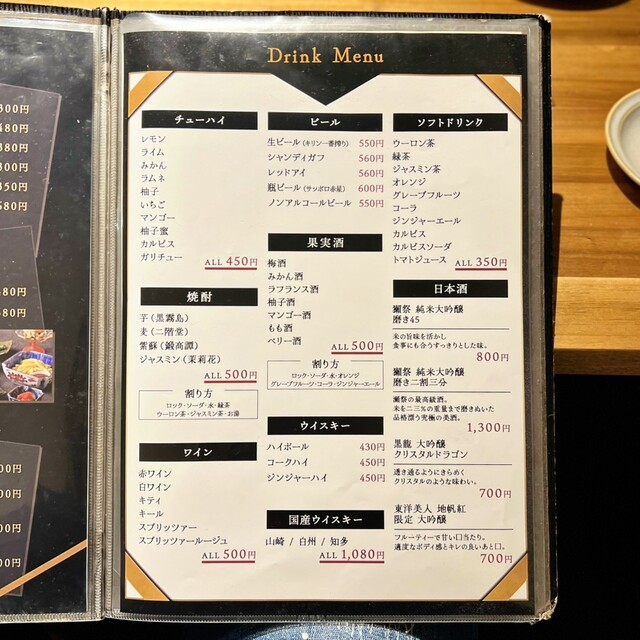 300円
480円
380円
300円
350円
580円
480円
580円
Drink Menu
チューハイ
レモン
ライム
みかん
ラムネ
柚子
いちご
マンゴー
柚子蜜
カルピス
ガリチュー
ALL 450円
焼酎
芋(黒霧島)
麦(二階堂)
紫蘇(鍛高譚)
ジャスミン(茉莉花)
ALL 500円
割り方
ロック・ソーダ・水・緑茶
ウーロン茶・ジャスミン茶・お湯
ワイン
赤ワイン
白ワイン
キティ
キール
スプリッツァー
スプリッツァールージュ
ALL 500円
ビール
生ビール(キリン一番搾り) 550円
シャンディガフ 560円
レッドアイ 560円
瓶ビール(サッポロ赤星) 600円
ノンアルコールビール 550円
果実酒
梅酒
みかん酒
ラフランス酒
柚子酒
マンゴー酒
もも酒
ベリー酒
ALL 500円
割り方
ロック・ソーダ・水・オレンジ
グレープフルーツ・コーラ・ジンジャーエール
ウイスキー
ハイボール 430円
コークハイ 450円
ジンジャーハイ 450円
国産ウイスキー
山崎 / 白州 / 知多
ALL 1,080円
ソフトドリンク
ウーロン茶
緑茶
ジャスミン茶
オレンジ
グレープフルーツ
コーラ
ジンジャーエール
カルピス
カルピスソーダ
トマトジュース
ALL 350円
日本酒
獺祭 純米大吟醸
磨き45
米の旨味を活かし
食事にも合うすっきりとした味。
800円
獺祭 純米大吟醸
磨き二割三分
獺祭の最高級酒。
米を二三%の重量まで磨きぬいた
品格漂う究極の美酒。
1,300円
黒龍 大吟醸
クリスタルドラゴン
透き通るようにきらめく
クリスタルのような味わい。
700円
東洋美人 地帆紅
限定 大吟醸
フルーティーで甘い口当たり。
適度なボディ感とキレの良いあと口。
700円